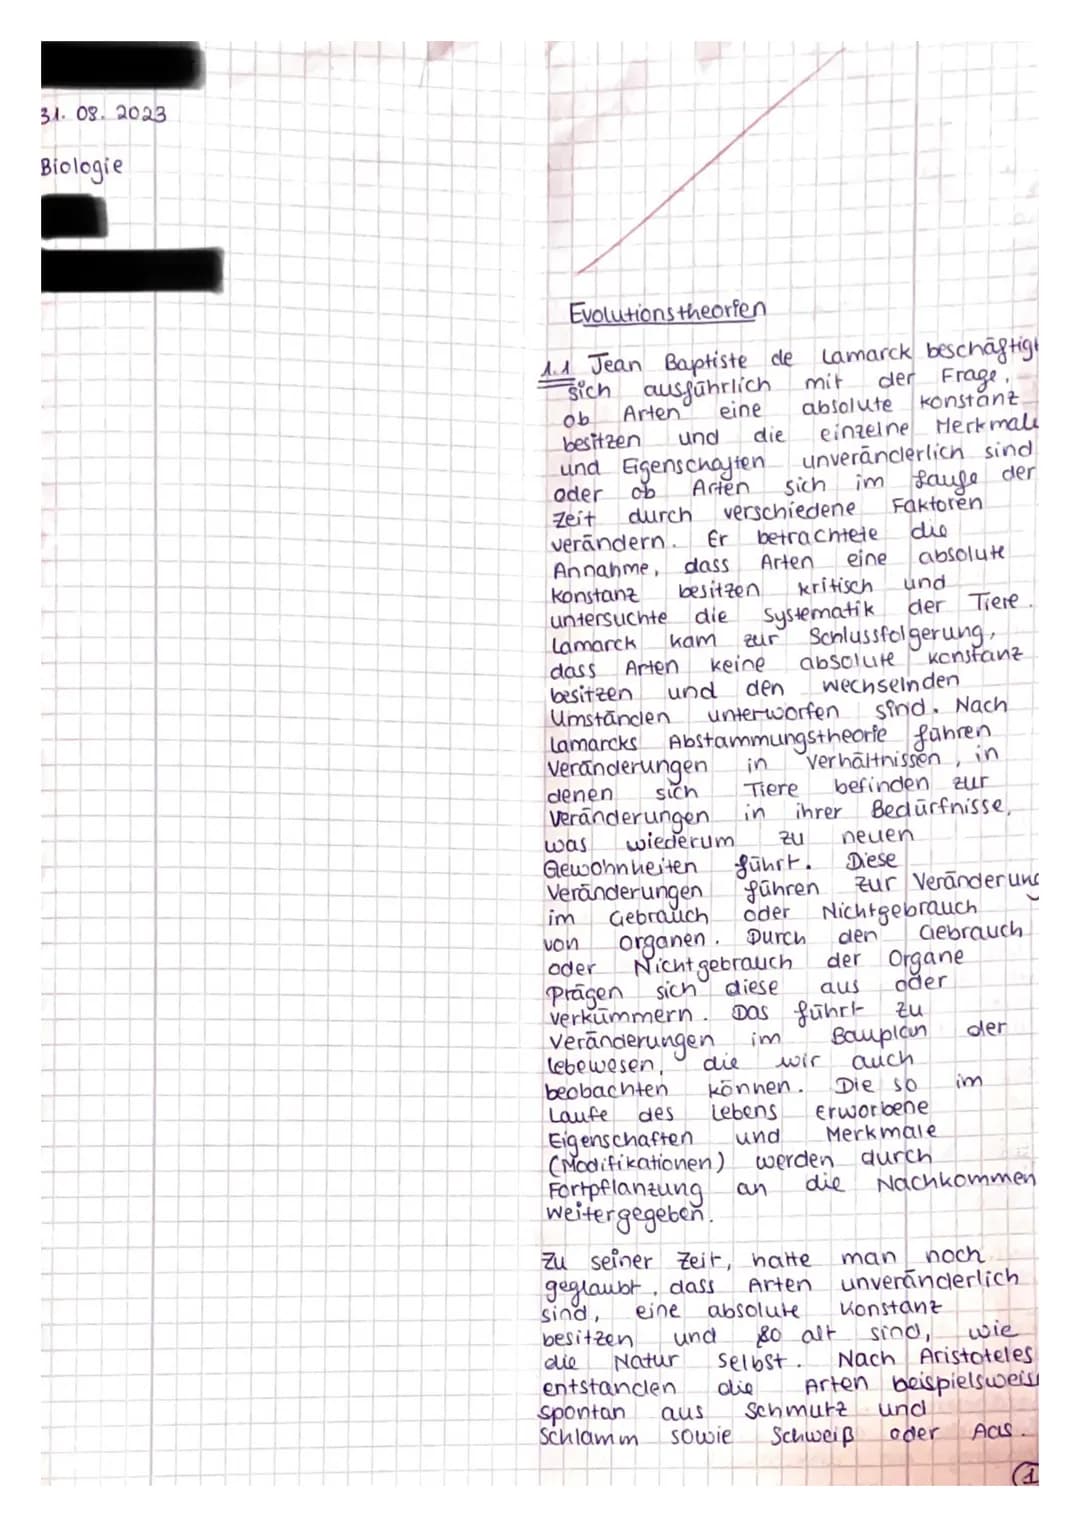 31. 08. 2023
Biologie
Evolutionstheorien
1.1 Jean Baptiste de Lamarck beschäftigt
sich ausführlich mit der Frage,
ob Arten eine absolute Konstanz
besitzen und die einzelne Merkmale
und Eigenschaften unveränderlich sind
oder ob Arten sich im Laufe der
Zeit durch verschiedene Faktoren
verändern. Er betrachtete die
Annahme, dass Arten eine absolute
Konstanz besitzen kritisch und
untersuchte die Systematik der Tiere.
Lamarck kam zur Schlussfolgerung,
dass Arten keine absolute Konstanz
besitzen und den wechselnden
Umständen unterworfen sind. Nach
Lamarcks Abstammungstheorie führen
Veränderungen in Verhältnissen, in
denen sich Tiere befinden zur
Veränderungen in ihrer Bedürfnisse,
was wiederum zu neuen
Gewohnheiten führt. Diese
Veränderungen führen zur Veränderung
im Gebrauch oder Nichtgebrauch
von Organen. Durch den Gebrauch
oder Nichtgebrauch der Organe
Prägen sich diese aus oder
verkümmern. Das führt zu
Veränderungen im Bauplan der
Lebewesen, die wir auch
beobachten können. Die so im
Laufe des Lebens Erworbene
Eigenschaften und Merkmale
(Modifikationen) werden durch
Fortpflanzung an die Nachkommen
weitergegeben.
Zu seiner Zeit, hatte man noch
geglaubt, dass Arten unveränderlich
sind, eine absolute Konstanz
besitzen und so alt sind, wie
die Natur selbst. Nach Aristoteles
entstanden die Arten beispielsweise
spontan aus Schmutz und
Schlamm sowie Schweiß oder Aas.
1